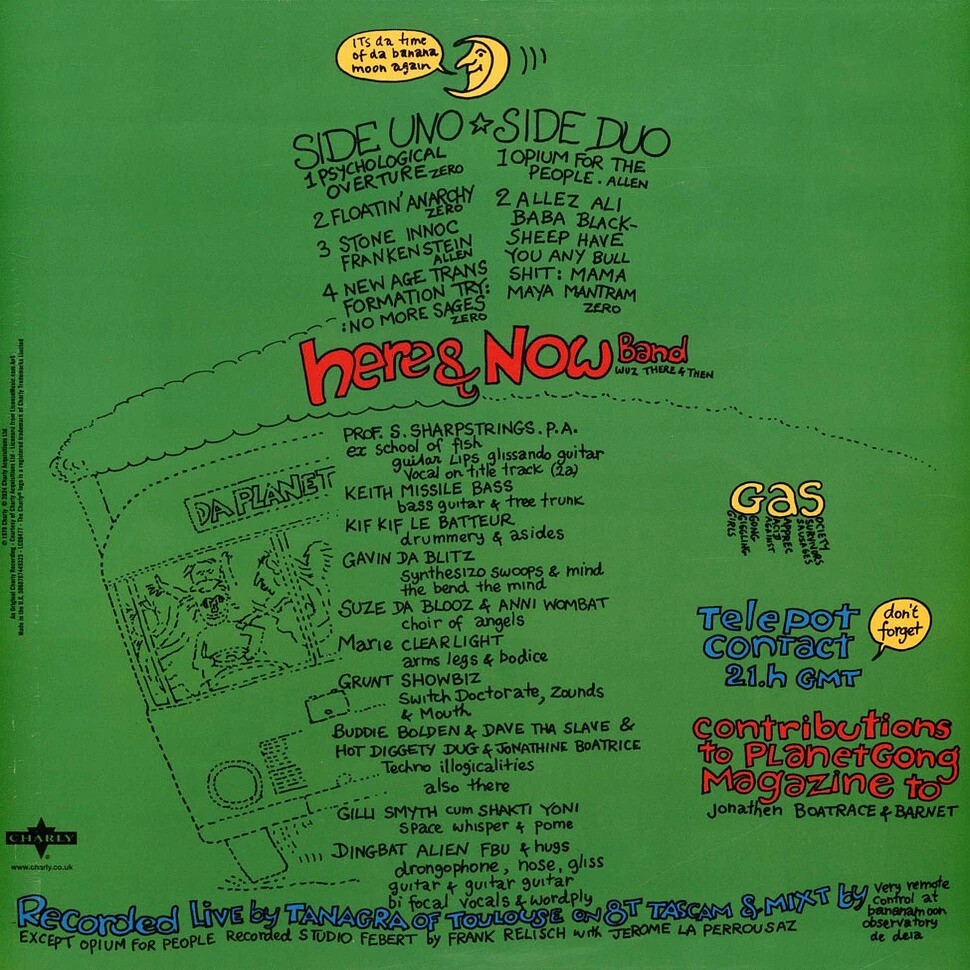 ITs da time
of da banana
moon again
SIDE UNO ☆ SIDE DUO
1 PSYCHOLOGICAL
OVERTURE ZERO
2 FLOATIN' ANARCHY
ZERO
3 STONE INNOC
FRANKENSTEIN
ALLEN
4 NEW AGE TRANS
FORMATION TRY:
:NO MORE SAGES
ZERO
1 OPIUM FOR THE
PEOPLE . ALLEN
2 ALLEZ ALI
BABA BLACK-
SHEEP HAVE
YOU ANY BULL
SHIT: MAMA
MAYA MANTRAM
ZERO
here & NOW Band
WUZ THERE & THEN
PROF. S. SHARPSTRINGS. P.A.
ex school of fish
guitar LIPS glissando guitar
Vocal on title track (2a)
KEITH MISSILE BASS
bass guitar & tree trunk
KIF KIF LE BATTEUR
drummery & asides
GAVIN DA BLITZ
Synthesizo swoops & mind
the bend the mind
SUZE DA BLOOZ & ANNI WOMBAT
choir of angels
Marie CLEARLIGHT
arms legs & bodice
GRUNT SHOWBIZ
Switch Doctorate, Zounds
& Mouth
BUDDIE BOLDEN & DAVE THA SLAVE &
HOT DIGGETY DUG & JONATHINE BOATRICE
Techno illogicalities
also there
GILLI SMYTH cum SHAKTI YONI
SPACE whisper & pome
DINGBAT ALIEN FBU & hugs
drongophone, nose, gliss
guitar & guitar guitar
bi focal vocals & wordply
DA PLANET
GAS
GIGGLING
GIRLS
GONG
AGAINST
ACID
APPREC
SAUSAGES
SURVIVORS
OCIETY
Telepot
contact
21.h GMT
don't
forget
contributions
to PLANETGong
Magazine to
Jonathen BOATRACE & BARNET
Recorded Live by TANAGRA OF TOULOUSE ON 8T TASCAM & MIXT by
very remote
control at
bananamoon
observatory
de deia
EXCEPT OPIUM FOR PEOPLE Recorded STUDIO FEBERT by FRANK RELISCH with JEROME LA PERROUSAZ
CHARLY
www.charly.co.uk